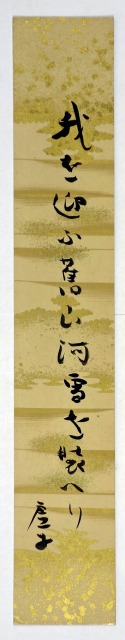 我を迎ふ舊山河雪を粧へり
虚子